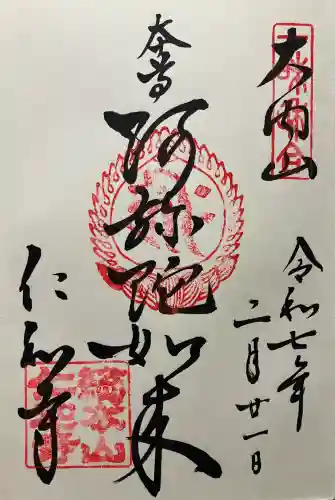 大内山
令和七年
二月廿一日
本尊
阿弥陀如来
仁和寺
總本山
仁和寺